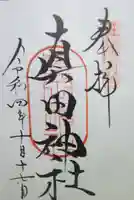 奉拝
真田神社
令和四年十月十七日